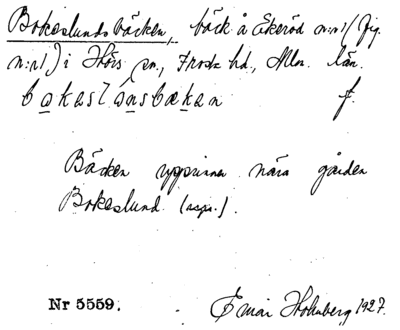 Bokeslundsbäcken, bäck å Ekeröd n:r1 (Jfg.
n:r1) i Hörs sn., Frosta hd., Mlm. län.
bokeslónsbækan f.
Bäcken upprinner nära gården
Bokeslund (aspr.).
Nr 5559. Einar Holmberg 1927.